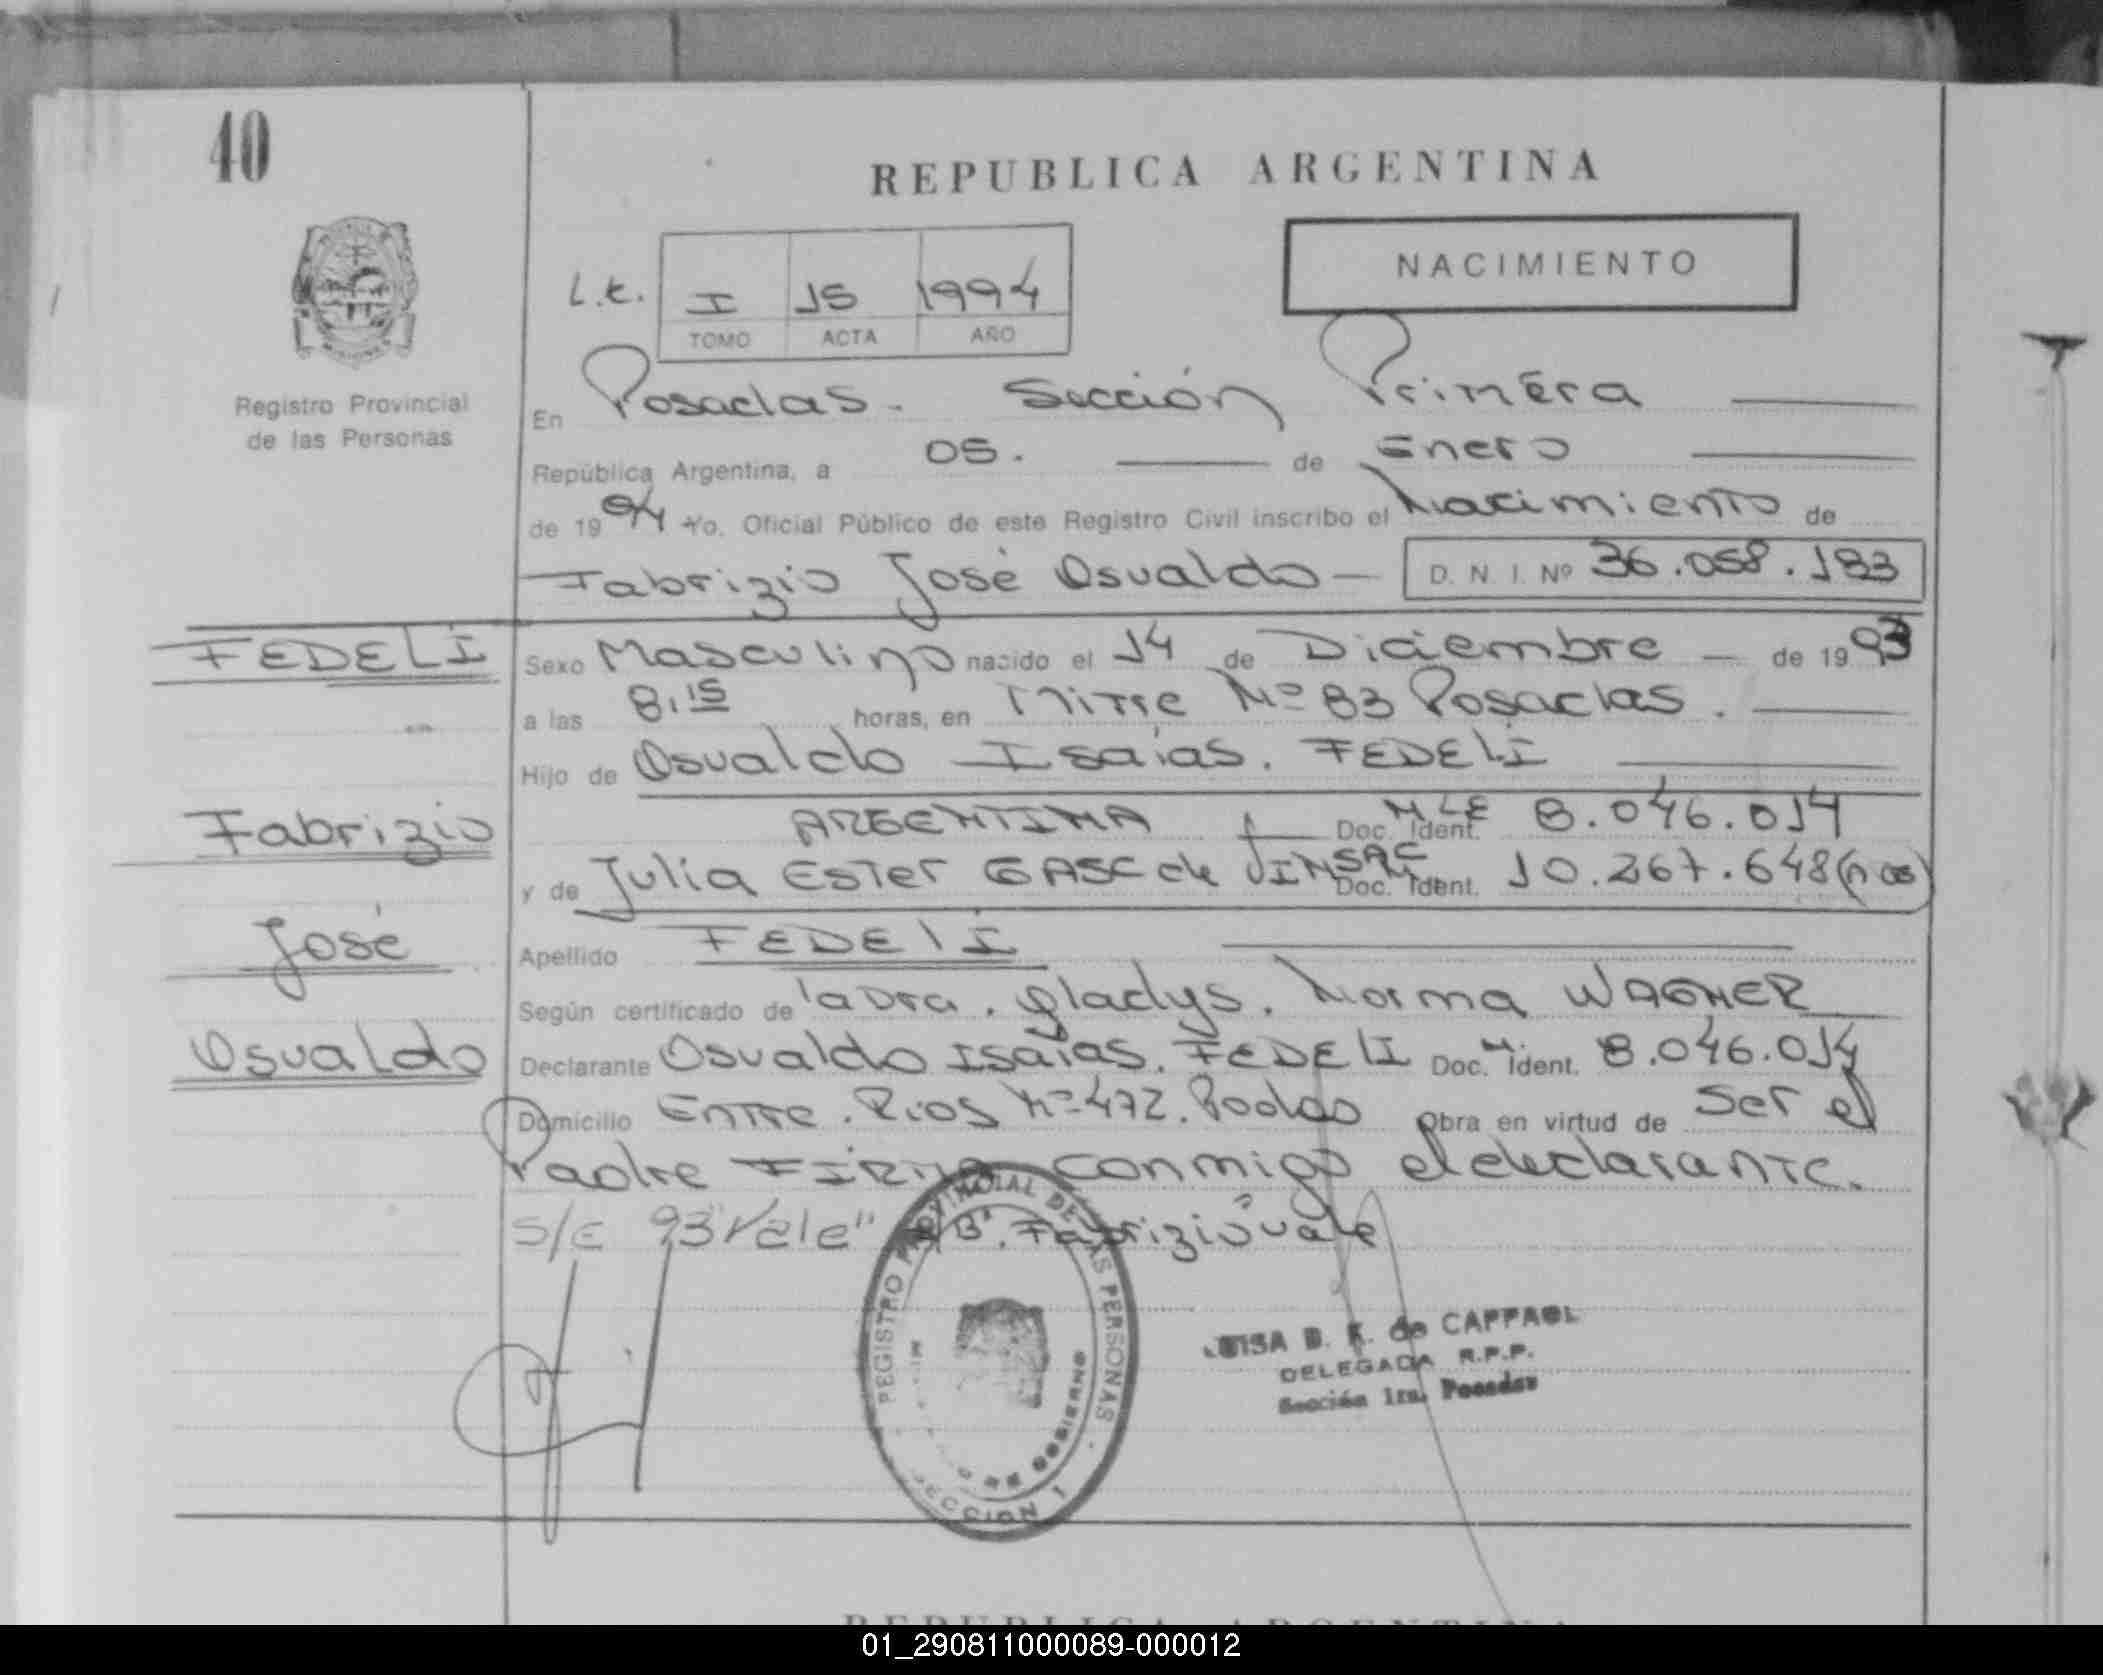 40
REPUBLICA ARGENTINA
NACIMIENTO
L.E. I 15 1994
TOMO ACTA AÑO
Registro Provincial
de las Personas
En Posadas. Sección Primera
República Argentina, a 05. de Enero
de 1994 Yo. Oficial Público de este Registro Civil inscribo el Nacimiento de
Fabrizio José Osvaldo - D. N. I. Nº 36.058.183
FEDELI
Sexo Masculino nacido el 14 de Diciembre - de 1993
a las 8,15 horas, en Mitre Nº 83 Posadas.
Hijo de Osvaldo Isaías. FEDELI
Fabrizio
ARGENTINA Doc. Ident. MLE 8.046.014
y de Julia Ester Doc. Ident. 10.267.648
José
Apellido FEDELI
Según certificado de la Dra. Gladys. Norma WAGNER
Osvaldo
Declarante Osvaldo Isaías. FEDELI Doc. Ident. 8.046.014
Domicilio Entre. Rios Nº 472. Podas Obra en virtud de Ser el
Padre FIRMA conmigo el declarante.
S/E 93 "Vale" Fabrizio "vale
REGISTRO PROVINCIAL DE LAS PERSONAS
DE GOBIERNO
SECCION 1
LUISA B. K. de CAPPAOL
DELEGADA R.P.P.
Sección 1ra. Posadas
REPUBLICA ARGENTINA
01_290811000089-000012